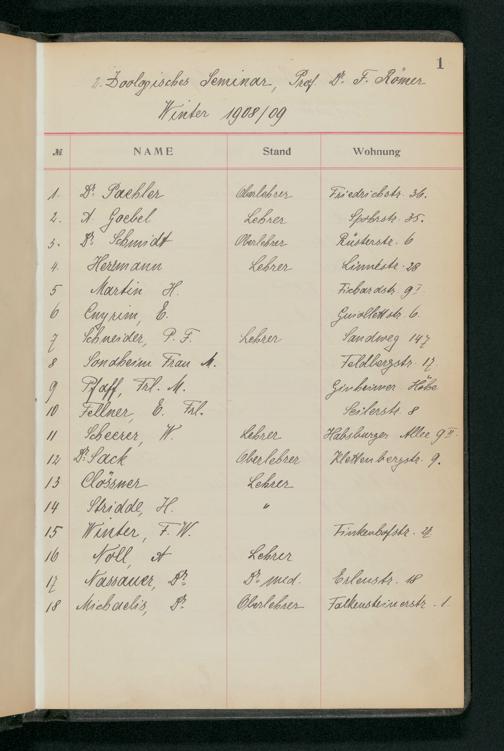 1
2. Zoologisches Seminar, Prof. Dr. F. Römer
Winter 1908/09
№ NAME Stand Wohnung
1. Dr. Paehler Oberlehrer Friedrichstr. 36.
2. A Goebel Lehrer Spohrstr. 35.
3. Dr. Schmidt Oberlehrer Rüsterstr. 6
4. Herrmann Lehrer Linnéstr. 28
5 Martin H. Fichardstr. 9 I
6 Enyrim, E. Guiollettstr. 6.
7 Schneider, P. F. Lehrer Sandweg 147
8 Sondheim Frau M. Feldbergstr. 17
9 Pfaff, Frl. M. Ginheimer Höhe
10 Fellner, E. Frl. Seilerstr. 8
11 Scheerer, W. Lehrer Habsburger Allee 9 II.
12 Dr. Sack Oberlehrer Klettenbergstr. 9.
13 Clössner Lehrer
14 Stridde, H. "
15 Winter, F. W. Finkenhofstr.
16 Noll, A Lehrer
17 Nassauer, Dr. Dr. med. Erlenstr. 18
18 Michaelis, Dr. Oberlehrer Falkensteinerstr. 1